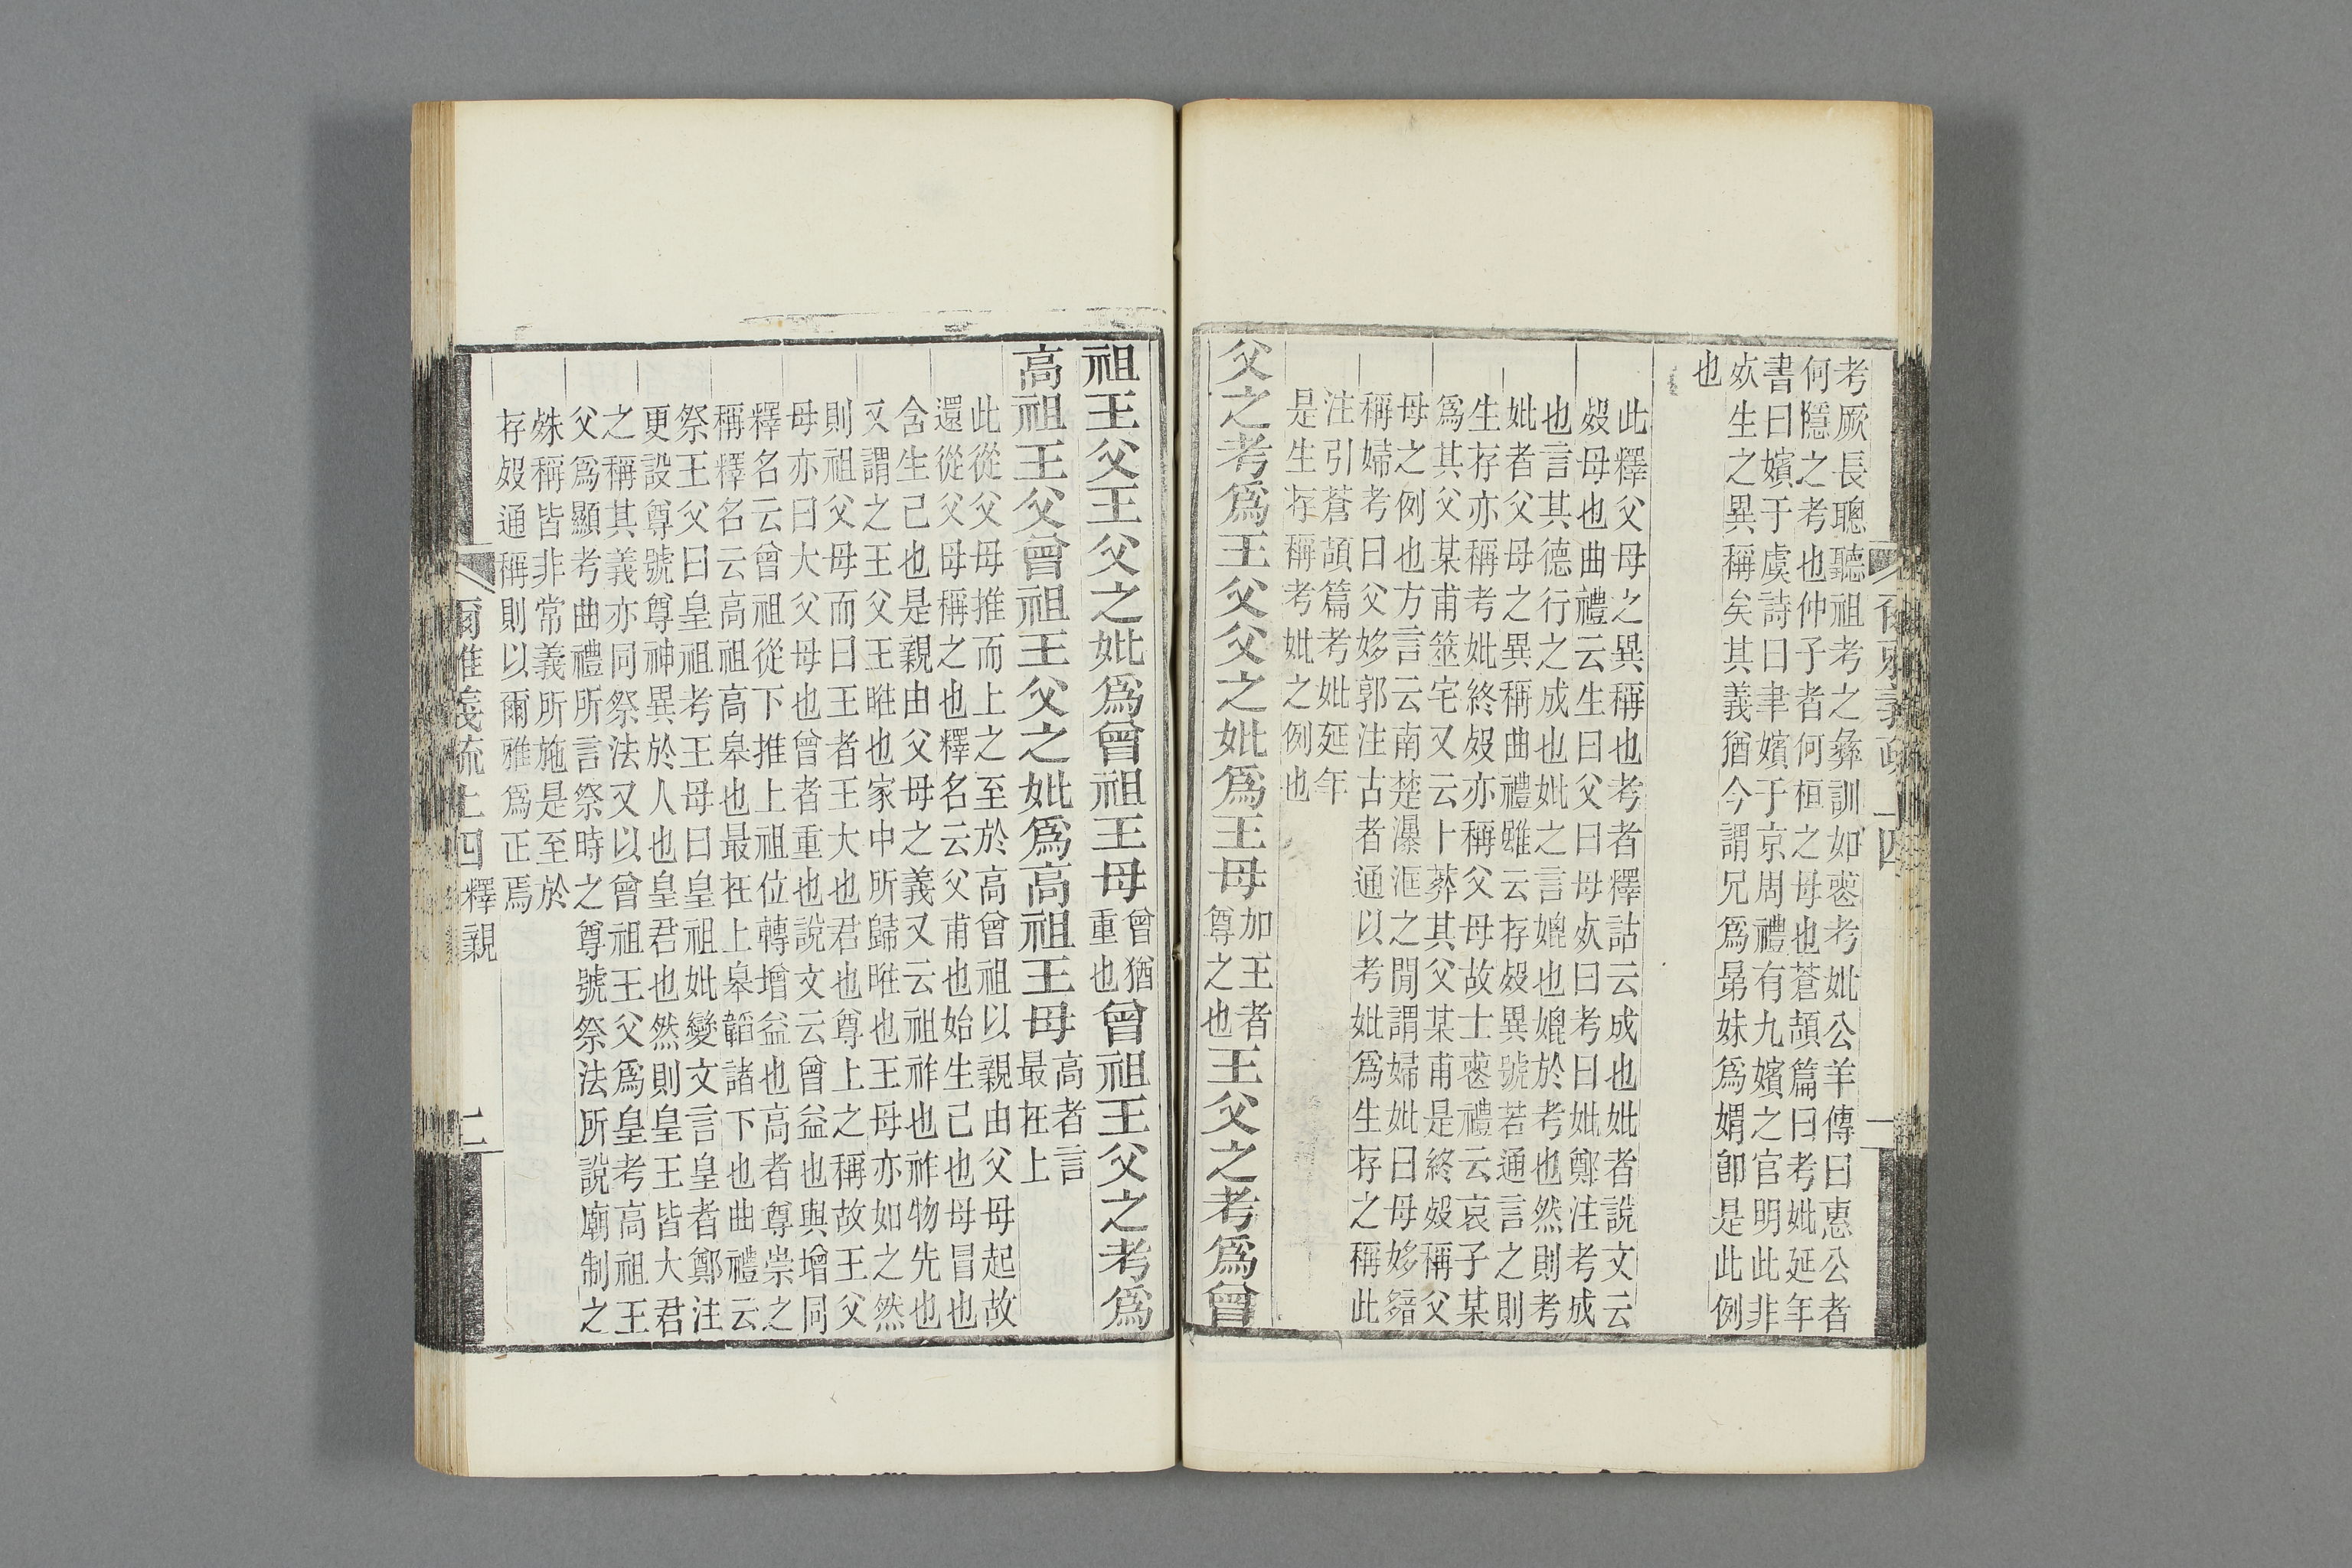 考厥長聰聽祖考之彝訓如䘮考妣公羊傳曰惠公者
何隱之考也仲子者何桓之母也蒼頡篇曰考妣延年
書曰嬪于虞詩曰聿嬪于京周禮有九嬪之官明此非
㱙生之異稱矣其義猶今謂兄爲晜妹爲媦卽是此例
也
此釋父母之異稱也考者釋詁云成也妣者說文云
殁母也曲禮云生曰父曰母㱙曰考曰妣鄭注考成
也言其德行之成也妣之言媲也媲於考也然則考
妣者父母之異稱曲禮雖云存殁異號若通言之則
生存亦稱考妣終殁亦稱父母故士䘮禮云哀子某
爲其父某甫筮宅又云卜葬其父某甫是終殁稱父
母之例也方言云南楚瀑洭之閒謂婦妣曰母姼
稱婦考曰父姼郭注古者通以考妣爲生存之稱此
注引蒼頡篇考妣延年
是生存稱考妣之例也
父之考爲王父父之妣爲王母加王者尊之也王父之考爲曾
祖王父王父之妣爲曾祖王母曾猶重也曾祖王父之考爲
高祖王父曾祖王父之妣爲高祖王母高者言最在上
此從父母推而上之至於高曾祖以親由父母起故
還從父母稱之也釋名云父甫也始生己也母冒也
含生己也是親由父母之義又云祖祚也祚物先也
又謂之王父王暀也家中所歸暀也王母亦如之然
則祖父母而曰王者王大也君也尊上之稱故王父
母亦曰大父母也曾者重也說文云曾益也與增同
釋名云曾祖從下推上祖位轉增益也高者尊崇之
稱釋名云高祖高皋也最在上皋韜諸下也曲禮云
祭王父曰皇祖考王母曰皇祖妣變文言皇者鄭注
更設尊號尊神異於人也皇君也然則皇王皆大君
之稱其義亦同祭法又以曾祖王父爲皇考高祖王
父爲顯考曲禮所言祭時之尊號祭法所說廟制之
殊稱皆非常義所施是至於
存殁通稱則以爾雅爲正焉
爾雅義疏上四 釋親 二